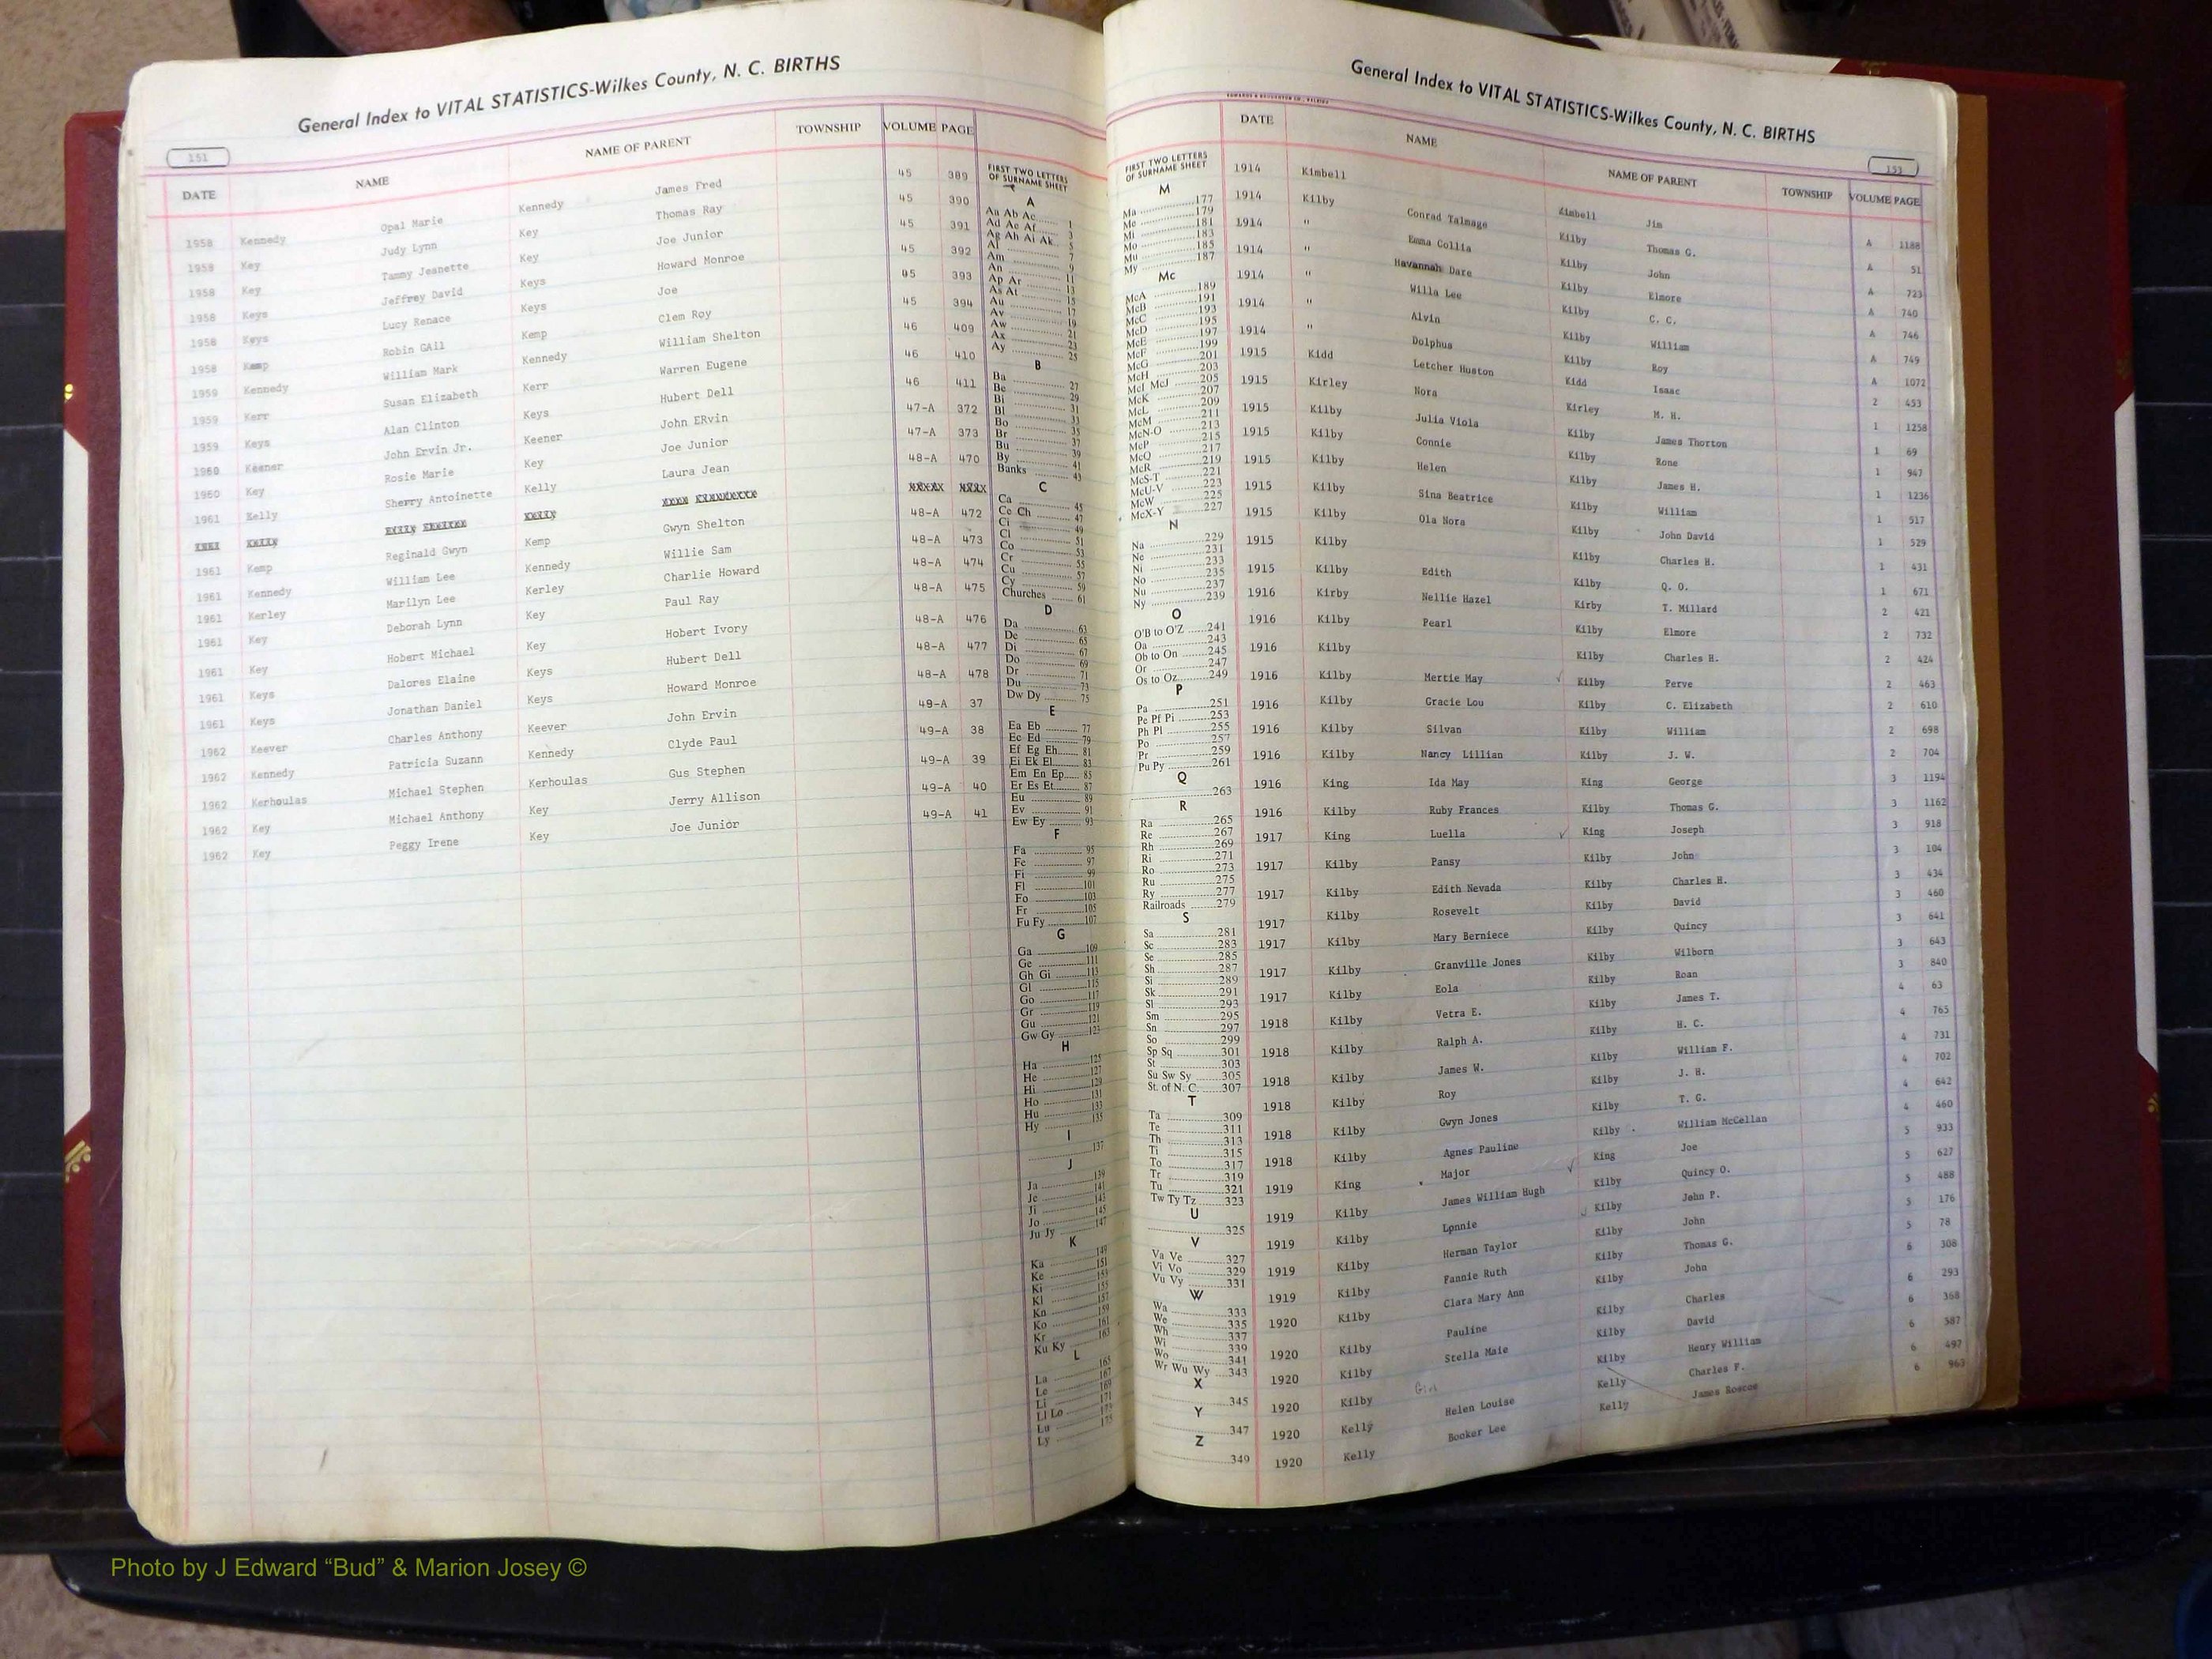 General Index to VITAL STATISTICS-Wilkes County, N. C. BIRTHS
151
DATE NAME NAME OF PARENT TOWNSHIP VOLUME PAGE
1958 Kennedy Opal Marie Kennedy James Fred 45 389
1958 Key Judy Lynn Key Thomas Ray 45 390
1958 Key Tammy Jeanette Key Joe Junior 45 391
1958 Keys Jeffrey David Keys Howard Monroe 45 392
1958 Keys Lucy Renace Keys Joe 45 393
1958 Kemp Robin GAil Kemp Clem Roy 45 394
1959 Kennedy William Mark Kennedy William Shelton 46 409
1959 Kerr Susan Elizabeth Kerr Warren Eugene 46 410
1959 Keys Alan Clinton Keys Hubert Dell 46 411
1960 Keener John Ervin Jr. Keener John ERvin 47-A 372
1960 Key Rosie Marie Key Joe Junior 47-A 373
1961 Kelly Sherry Antoinette Kelly Laura Jean 48-A 470
1961 Kemp Reginald Gwyn Kemp Gwyn Shelton 48-A 472
1961 Kennedy William Lee Kennedy Willie Sam 48-A 473
1961 Kerley Marilyn Lee Kerley Charlie Howard 48-A 474
1961 Key Deborah Lynn Key Paul Ray 48-A 475
1961 Key Hobert Michael Key Hobert Ivory 48-A 476
1961 Keys Dalores Elaine Keys Hubert Dell 48-A 477
1961 Keys Jonathan Daniel Keys Howard Monroe 48-A 478
1962 Keever Charles Anthony Keever John Ervin 49-A 37
1962 Kennedy Patricia Suzann Kennedy Clyde Paul 49-A 38
1962 Kerhoulas Michael Stephen Kerhoulas Gus Stephen 49-A 39
1962 Key Michael Anthony Key Jerry Allison 49-A 40
1962 Key Peggy Irene Key Joe Junior 49-A 41
FIRST TWO LETTERS
OF SURNAME SHEET
A
Aa Ab Ac 1
Ad Ae Af 3
Ag Ah Ai Ak 5
Al 7
Am 9
An 11
Ap Ar 13
As At 15
Au 17
Av 19
Aw 21
Ax 23
Ay 25
B
Ba 27
Be 29
Bi 31
Bl 33
Bo 35
Br 37
Bu 39
By 41
Banks 43
C
Ca 45
Ce Ch 47
Ci 49
Cl 51
Co 53
Cr 55
Cu 57
Cy 59
Churches 61
D
Da 63
De 65
Di 67
Do 69
Dr 71
Du 73
Dw Dy 75
E
Ea Eb 77
Ec Ed 79
Ef Eg Eh 81
Ei Ek El 83
Em En Ep 85
Er Es Et 87
Eu 89
Ev 91
Ew Ey 93
F
Fa 95
Fe 97
Fi 99
Fl 101
Fo 103
Fr 105
Fu Fy 107
G
Ga 109
Ge 111
Gh Gi 113
Gl 115
Go 117
Gr 119
Gu 121
Gw Gy 123
H
Ha 125
He 127
Hi 129
Ho 131
Hu 133
Hy 135
I
137
J
Ja 139
Je 141
Ji 143
Jo 145
Ju Jy 147
K
Ka 149
Ke 151
Ki 153
Kl 155
Kn 157
Ko 159
Kr 161
Ku Ky 163
L
La 165
Le 167
Li 169
Ll Lo 171
Lu 173
Ly 175
General Index to VITAL STATISTICS-Wilkes County, N. C. BIRTHS
153
FIRST TWO LETTERS
OF SURNAME SHEET
M
Ma 177
Me 179
Mi 181
Mo 183
Mu 185
My 187
Mc
McA 189
McB 191
McC 193
McD 195
McE 197
McF 199
McG 201
McH 203
McI McJ 205
McK 207
McL 209
McM 211
McN-O 213
McP 215
McQ 217
McR 219
McS-T 221
McU-V 223
McW 225
McX-Y 227
N
Na 229
Ne 231
Ni 233
No 235
Nu 237
Ny 239
O
O'B to O'Z 241
Oa 243
Ob to On 245
Or 247
Os to Oz 249
P
Pa 251
Pe Pf Pi 253
Ph Pl 255
Po 257
Pr 259
Pu Py 261
Q
263
R
Ra 265
Re 267
Rh 269
Ri 271
Ro 273
Ru 275
Ry 277
Railroads 279
S
Sa 281
Sc 283
Se 285
Sh 287
Si 289
Sk 291
Sl 293
Sm 295
Sn 297
So 299
Sp Sq 301
St 303
Su Sw Sy 305
St. of N. C. 307
T
Ta 309
Te 311
Th 313
Ti 315
To 317
Tr 319
Tu 321
Tw Ty Tz 323
U
325
V
Va Ve 327
Vi Vo 329
Vu Vy 331
W
Wa 333
We 335
Wh 337
Wi 339
Wo 341
Wr Wu Wy 343
X
345
Y
347
Z
349
DATE NAME NAME OF PARENT TOWNSHIP VOLUME PAGE
1914 Kimbell Kimbell Jim A 1188
1914 Kilby Conrad Talmage Kilby Thomas G. A 51
1914 " Emma Collia Kilby John A 723
1914 " Havannah Dare Kilby Elmore A 740
1914 " Willa Lee Kilby C. C. A 746
1914 " Alvin Kilby William A 749
1914 " Dolphus Kilby Roy A 1072
1915 Kidd Letcher Huston Kidd Isaac 2 453
1915 Kirley Nora Kirley M. H. 1 1258
1915 Kilby Julia Viola Kilby James Thorton 1 69
1915 Kilby Connie Kilby Rone 1 947
1915 Kilby Helen Kilby James H. 1 1236
1915 Kilby Sina Beatrice Kilby William 1 517
1915 Kilby Ola Nora Kilby John David 1 529
1915 Kilby Kilby Charles H. 1 431
1915 Kilby Edith Kilby Q. O. 1 671
1916 Kirby Nellie Hazel Kirby T. Millard 2 421
1916 Kilby Pearl Kilby Elmore 2 732
1916 Kilby Kilby Charles H. 2 424
1916 Kilby Mertie May Kilby Perve 2 463
1916 Kilby Gracie Lou Kilby C. Elizabeth 2 610
1916 Kilby Silvan Kilby William 2 698
1916 Kilby Nancy Lillian Kilby J. W. 2 704
1916 King Ida May King George 3 1194
1916 Kilby Ruby Frances Kilby Thomas G. 3 1162
1917 King Luella King Joseph 3 918
1917 Kilby Pansy Kilby John 3 104
1917 Kilby Edith Nevada Kilby Charles H. 3 434
1917 Kilby Rosevelt Kilby David 3 460
1917 Kilby Mary Berniece Kilby Quincy 3 641
1917 Kilby Granville Jones Kilby Wilborn 3 643
1917 Kilby Eola Kilby Roan 3 840
1918 Kilby Vetra E. Kilby James T. 4 63
1918 Kilby Ralph A. Kilby H. C. 4 765
1918 Kilby James W. Kilby William F. 4 731
1918 Kilby Roy Kilby J. H. 4 702
1918 Kilby Gwyn Jones Kilby T. G. 4 642
1918 Kilby Agnes Pauline Kilby William McCellan 4 460
1919 King Major King Joe 5 933
1919 Kilby James William Hugh Kilby Quincy O. 5 627
1919 Kilby Lonnie Kilby John P. 5 488
1919 Kilby Herman Taylor Kilby John 5 176
1919 Kilby Fannie Ruth Kilby Thomas G. 5 78
1920 Kilby Clara Mary Ann Kilby John 6 308
1920 Kilby Pauline Kilby Charles 6 293
1920 Kilby Stella Maie Kilby David 6 368
1920 Kilby Girl Kilby Henry William 6 387
1920 Kelly Helen Louise Kelly Charles F. 6 497
1920 Kelly Booker Lee Kelly James Roscoe 6 963
Photo by J Edward “Bud” & Marion Josey ©